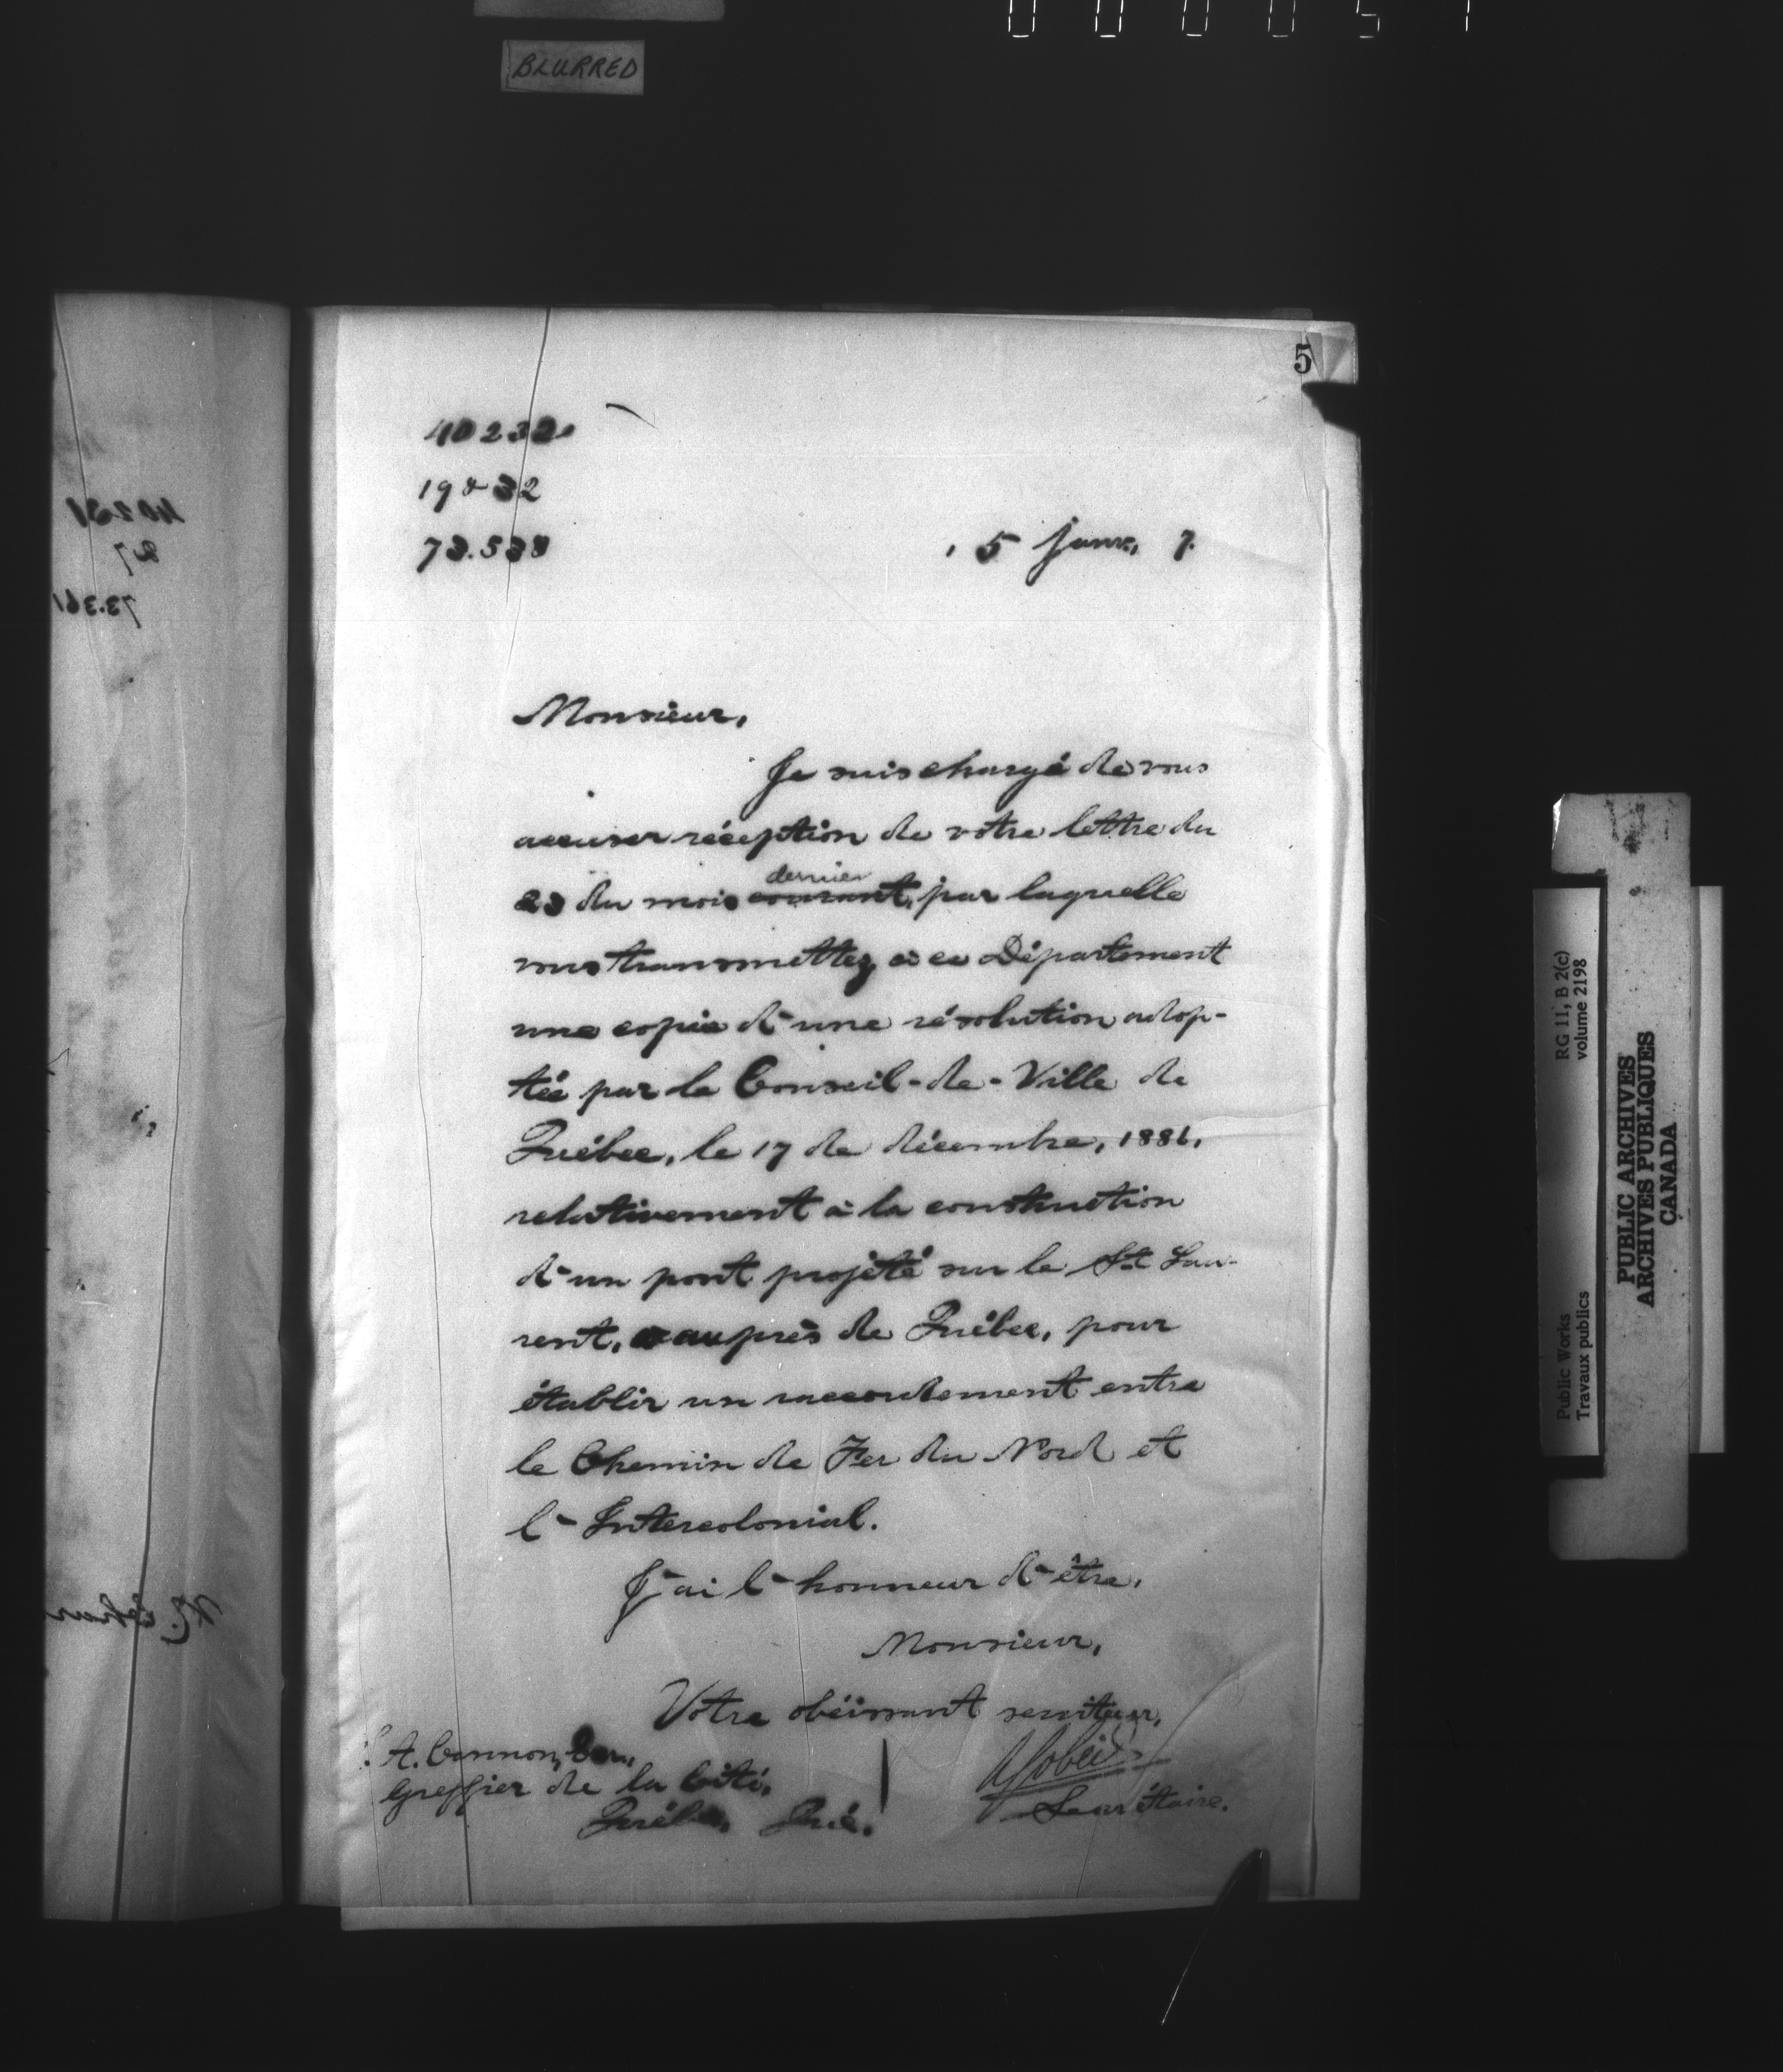 BLURRED
5
40232
19832
73.538
5 janv. 7.
Monsieur,
Je suis chargé de vous
accuser réception de votre lettre du
23 du mois courant, dernier par laquelle
vous transmettez à ce Département
une copie d'une résolution adop-
tée par le Conseil-de-Ville de
Québec, le 17 de décembre, 1886,
relativement à la construction
d'un pont projeté sur le St Lau-
rent, auprès de Québec, pour
établir un raccordement entre
le Chemin de Fer du Nord et
l'Intercolonial.
J'ai l'honneur d'être,
Monsieur,
Votre obéissant serviteur,
A Gobeil
Secrétaire.
A. Cannon, Ecr.,
Greffier de la Cité,
Québec, Qué.
40231
27
73.361
RG 11, B 2(c)
volume 2198
Public Works
Travaux publics
PUBLIC ARCHIVES
ARCHIVES PUBLIQUES
CANADA